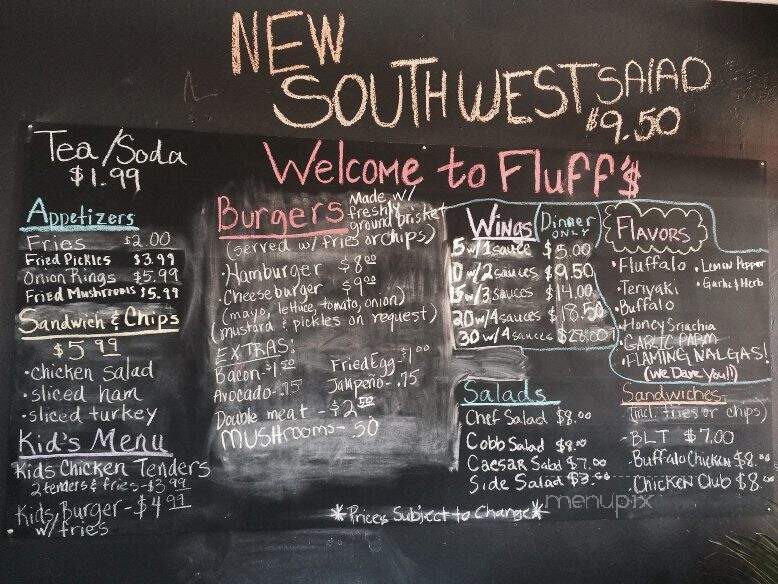 NEW
SOUTHWEST SALAD
$9.50
Tea/Soda
$1.99
Welcome to Fluff's
Appetizers
Fries $2.00
Fried Pickles $3.99
Onion Rings $5.99
Fried Mushrooms $5.99
Sandwich & Chips
$5.99
•chicken salad
•sliced ham
•sliced turkey
Kid's Menu
Kids Chicken Tenders
2 tenders & fries-$3.99
Kids Burger-$4.99
w/fries
Burgers Made w/
freshly
ground brisket
(served w/ fries or chips)
•Hamburger $8.00
•Cheeseburger $9.00
(mayo, lettuce, tomato, onion)
(mustard & pickles on request)
EXTRAS:
Bacon-$1.50 Fried Egg-$1.00
Avocado-.75 Jalapeno-.75
Double meat -$2.50
Mushrooms-.50
Wings Dinner
ONLY
5 w/1 sauce $5.00
10 w/2 sauces $9.50
15 w/3 sauces $14.00
20 w/4 sauces $18.50
30 w/4 sauces
FLAVORS
•Fluffalo •Lemon Pepper
•Teriyaki •Garlic & Herb
•Buffalo
•Honey Sriachia
•GARLIC PARM
•FLAMING NALGAS!
(We Dare You!!)
Salads
Chef Salad $8.00
Cobb Salad $8.00
Caesar Salad $7.00
Side Salad
Sandwiches
(incl. fries or chips)
-BLT $7.00
-Buffalo Chicken $8.00
-Chicken Club $8.00
*Prices Subject to Change*
menupix